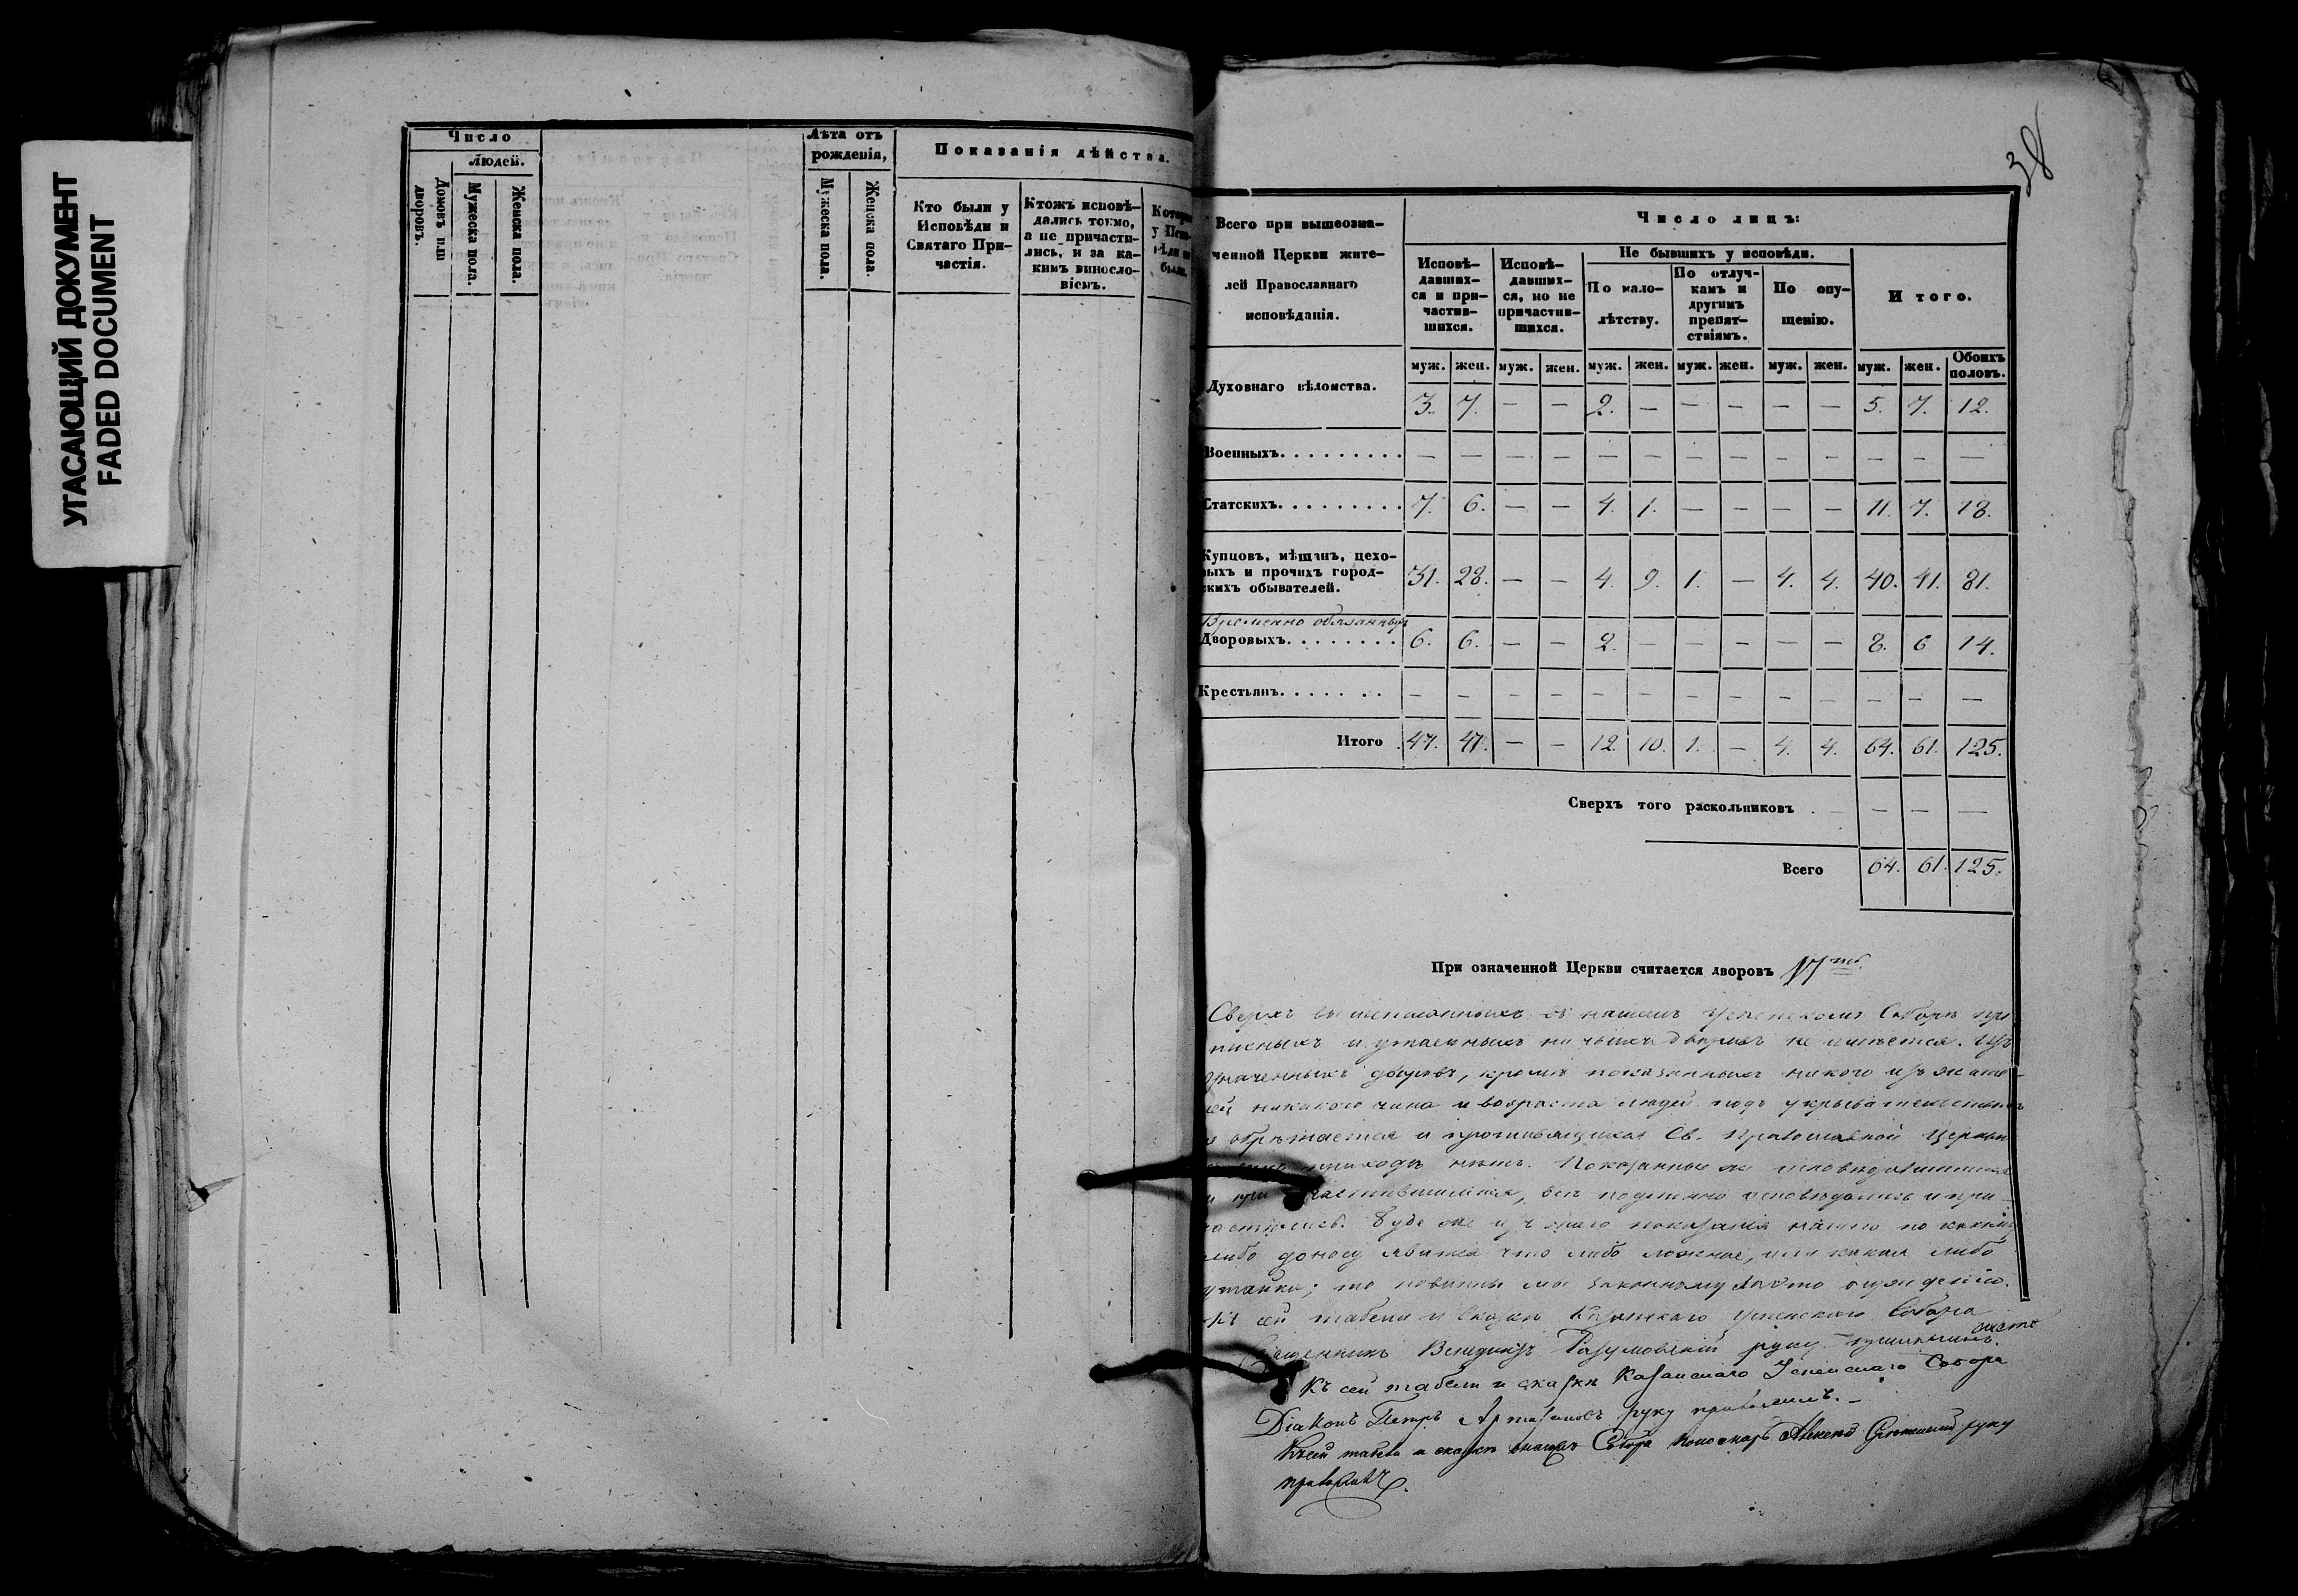 УГАСАЮЩИЙ ДОКУМЕНТ
FADED DOCUMENT
Число
людей.
Домовъ или дворовъ.
Мужеска пола.
Женска пола.
Лѣта отъ
рожденія,
Мужеска пола.
Женска пола.
Показанія дѣйства.
Кто были у
Исповѣди и
Святаго При-
частія.
Ктожъ исповѣ-
дались токмо,
а не причасти-
лись, и за ка-
кимъ винословіемъ.
38
Всего при вышеозна-
ченной Церкви жите-
лей Православнаго
исповѣданія.
Число лицъ:
Исповѣ-
давших-
ся и при-
частив-
шихся.
Исповѣ-
давших-
ся, но не
причастив-
шихся.
Не бывшихъ у исповѣди.
По мало-
лѣтству.
По отлуч-
камъ и
другимъ
препят-
ствіямъ.
По опу-
щенію.
Итого.
муж. жен. муж. жен. муж. жен. муж. жен. муж. жен. муж. жен. Обоихъ половъ.
Духовнаго вѣдомства. 3. 7. — — 2. — — — — — 5. 7. 12.
Военныхъ. — — — — — — — — — — — — —
Статскихъ. 7. 6. — — 4. 1. — — — — 11. 7. 18.
Купцовъ, мѣщанъ, цехо-
выхъ и прочихъ город-
скихъ обывателей. 31. 28. — — 4. 9. 1. — 4. 4. 40. 41. 81.
Временно обязанныхъ
Дворовыхъ. 6. 6. — — 2. — — — — — 8. 6 14.
Крестьянъ. — — — — — — — — — — — — —
Итого 47. 47. — — 12. 10. 1. — 4. 4. 64. 61. 125.
Сверхъ того раскольниковъ — — — —
Всего 64. 61. 125.
При означенной Церкви считается дворовъ 17
Сверхъ въ нашемъ Успенскомъ Соборѣ при
писныхъ и утаенныхъ дворовъ не имѣется. Изъ
означенныхъ дворовъ, кромѣ показанныхъ никого изъ жите-
лей никакого чина и возраста людей подъ
обрѣтается и противящихся Св. Православной Церкви
приходѣ нѣтъ. Показанные же исповѣдавшимися
и при частившимися, всѣ подлинно исповѣдались и при-
частились. Буде же изъ сего показанія нашего по какому
либо доносу явится что либо ложное, или какая либо
утайка; то повинны мы законному за то сужденію.
Къ сей табели и сказкѣ Казанскаго Успенскаго Собора
Священникъ Венедиктъ Разумовскій руку
Къ сей табели и сказкѣ Казанскаго Успенскаго Собора
Діаконъ Петръ руку приложилъ.
Къ сей табели и сказкѣ Собора Пономарь Алексѣй руку
приложилъ.